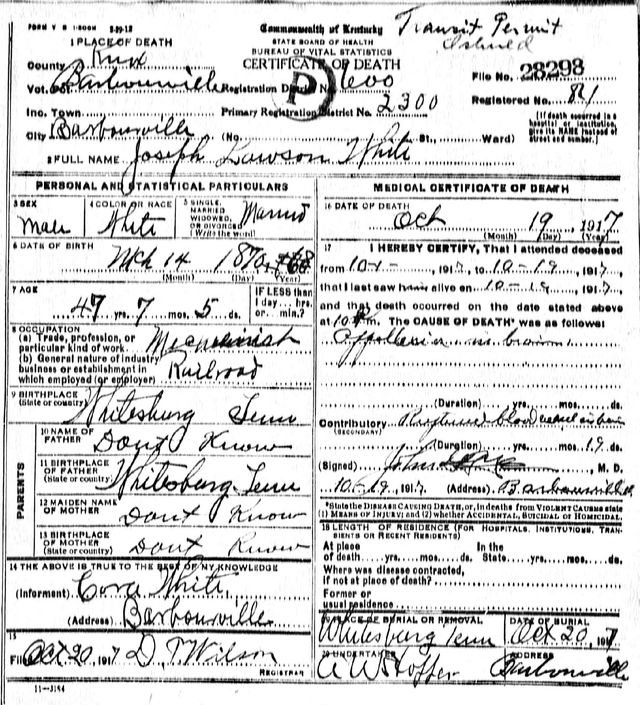 FORM V S 1-500M 3-29-12
Commonwealth of Kentucky
Transit Permit
STATE BOARD OF HEALTH
BUREAU OF VITAL STATISTICS
CERTIFICATE OF DEATH
1 PLACE OF DEATH
County Knox
File No. 28298
Vot. Pct Barbourville Registration District No. 600
P
Registered No. 81
Inc. Town Primary Registration District No. 2300
[If death occurred in a hospital or institution, give its NAME instead of street and number.]
City Barbourville (No. St., Ward)
2 FULL NAME Joseph Lawson White
PERSONAL AND STATISTICAL PARTICULARS
3 SEX
Male
4 COLOR OR RACE
White
5 SINGLE, MARRIED WIDOWED, OR DIVORCED (Write the word)
Married
6 DATE OF BIRTH
Mch 14 1870
(Month) (Day) (Year)
7 AGE
47 yrs. 7 mos. 5 ds.
IF LESS than 1 day hrs. or min.?
8 OCCUPATION
(a) Trade, profession, or particular kind of work
(b) General nature of industry business or establishment in which employed (or employer) Railroad
9 BIRTHPLACE (State or country) Whitesburg Tenn
PARENTS
10 NAME OF FATHER Dont Know
11 BIRTHPLACE OF FATHER (State or country) Whitesburg Tenn
12 MAIDEN NAME OF MOTHER Dont Know
13 BIRTHPLACE OF MOTHER (State or country) Dont Know
14 THE ABOVE IS TRUE TO THE BEST OF MY KNOWLEDGE
(Informant) Cora White
(Address) Barbourville
15
Filed Oct 20, 1917 D. T. Wilson
REGISTRAR
11-3184
MEDICAL CERTIFICATE OF DEATH
16 DATE OF DEATH
Oct 19, 1917
(Month) (Day) (Year)
17 I HEREBY CERTIFY, That I attended deceased
from 10-1-, 1917, to 10-19, 1917,
that I last saw him alive on 10-19, 1917,
and that death occurred on the date stated above
at m. The CAUSE OF DEATH* was as follows:
in brain
(Duration) yrs. mos. ds.
Contributory Ruptured blood
(SECONDARY)
(Duration) yrs. mos. 19 ds.
(Signed) M. D.
10-19, 1917 (Address) Barbourville
*State the DISEASE CAUSING DEATH, or, in deaths from VIOLENT CAUSES state
(1) MEANS OF INJURY; and (2) whether ACCIDENTAL, SUICIDAL or HOMICIDAL.
18 LENGTH OF RESIDENCE (FOR HOSPITALS, INSTITUTIONS, TRANSIENTS OR RECENT RESIDENTS)
At place of death yrs. mos. ds. In the State yrs. mos. ds.
Where was disease contracted, if not at place of death?
Former or usual residence
19 PLACE OF BURIAL OR REMOVAL
Whitesburg Tenn
DATE OF BURIAL
Oct 20, 1917
20 UNDERTAKER
ADDRESS
Barbourville